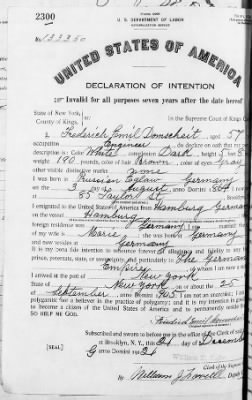 2300
U. S. DEPARTMENT OF LABOR
NATURALIZATION SERVICE
No. 133350
UNITED STATES OF AMERICA
DECLARATION OF INTENTION
Invalid for all purposes seven years after the date hereof
State of New York,
County of Kings,
In the Supreme Court of Kings
I, Frederich Emil Domscheit, aged 57
occupation Engineer, do declare on oath that my
description is: Color White, complexion Dark, height 5 feet 8
weight 190 pounds, color of hair Brown, color of eyes
other visible distinctive marks none
I was born in Russian Germany
on the 3 day of August, anno Domini 1864
at 85 Taylor
I emigrated to the United States of America from Hamburg Germany
on the vessel Hamburg
foreign residence was Germany; I am married
of my wife is Marie; was born at Germany
and now resides at Germany
It is my bona fide intention to renounce forever all allegiance and fidelity to any
prince, potentate, state, or sovereignty, and particularly to The German
Empire of whom I am now a
I arrived at the port of New York
State of New York, on or about the 25
of September, anno Domini 1905; I am not an anarchist
polygamist nor a believer in the practice of polygamy; and it is my intention in good
to become a citizen of the United States of America and to permanently reside
SO HELP ME GOD.
Subscribed and sworn to before me in the office of the Clerk of said
at Brooklyn, N. Y., this 24 day of December
[SEAL]
anno Domini 1921
Clerk of the Supreme
By William J.